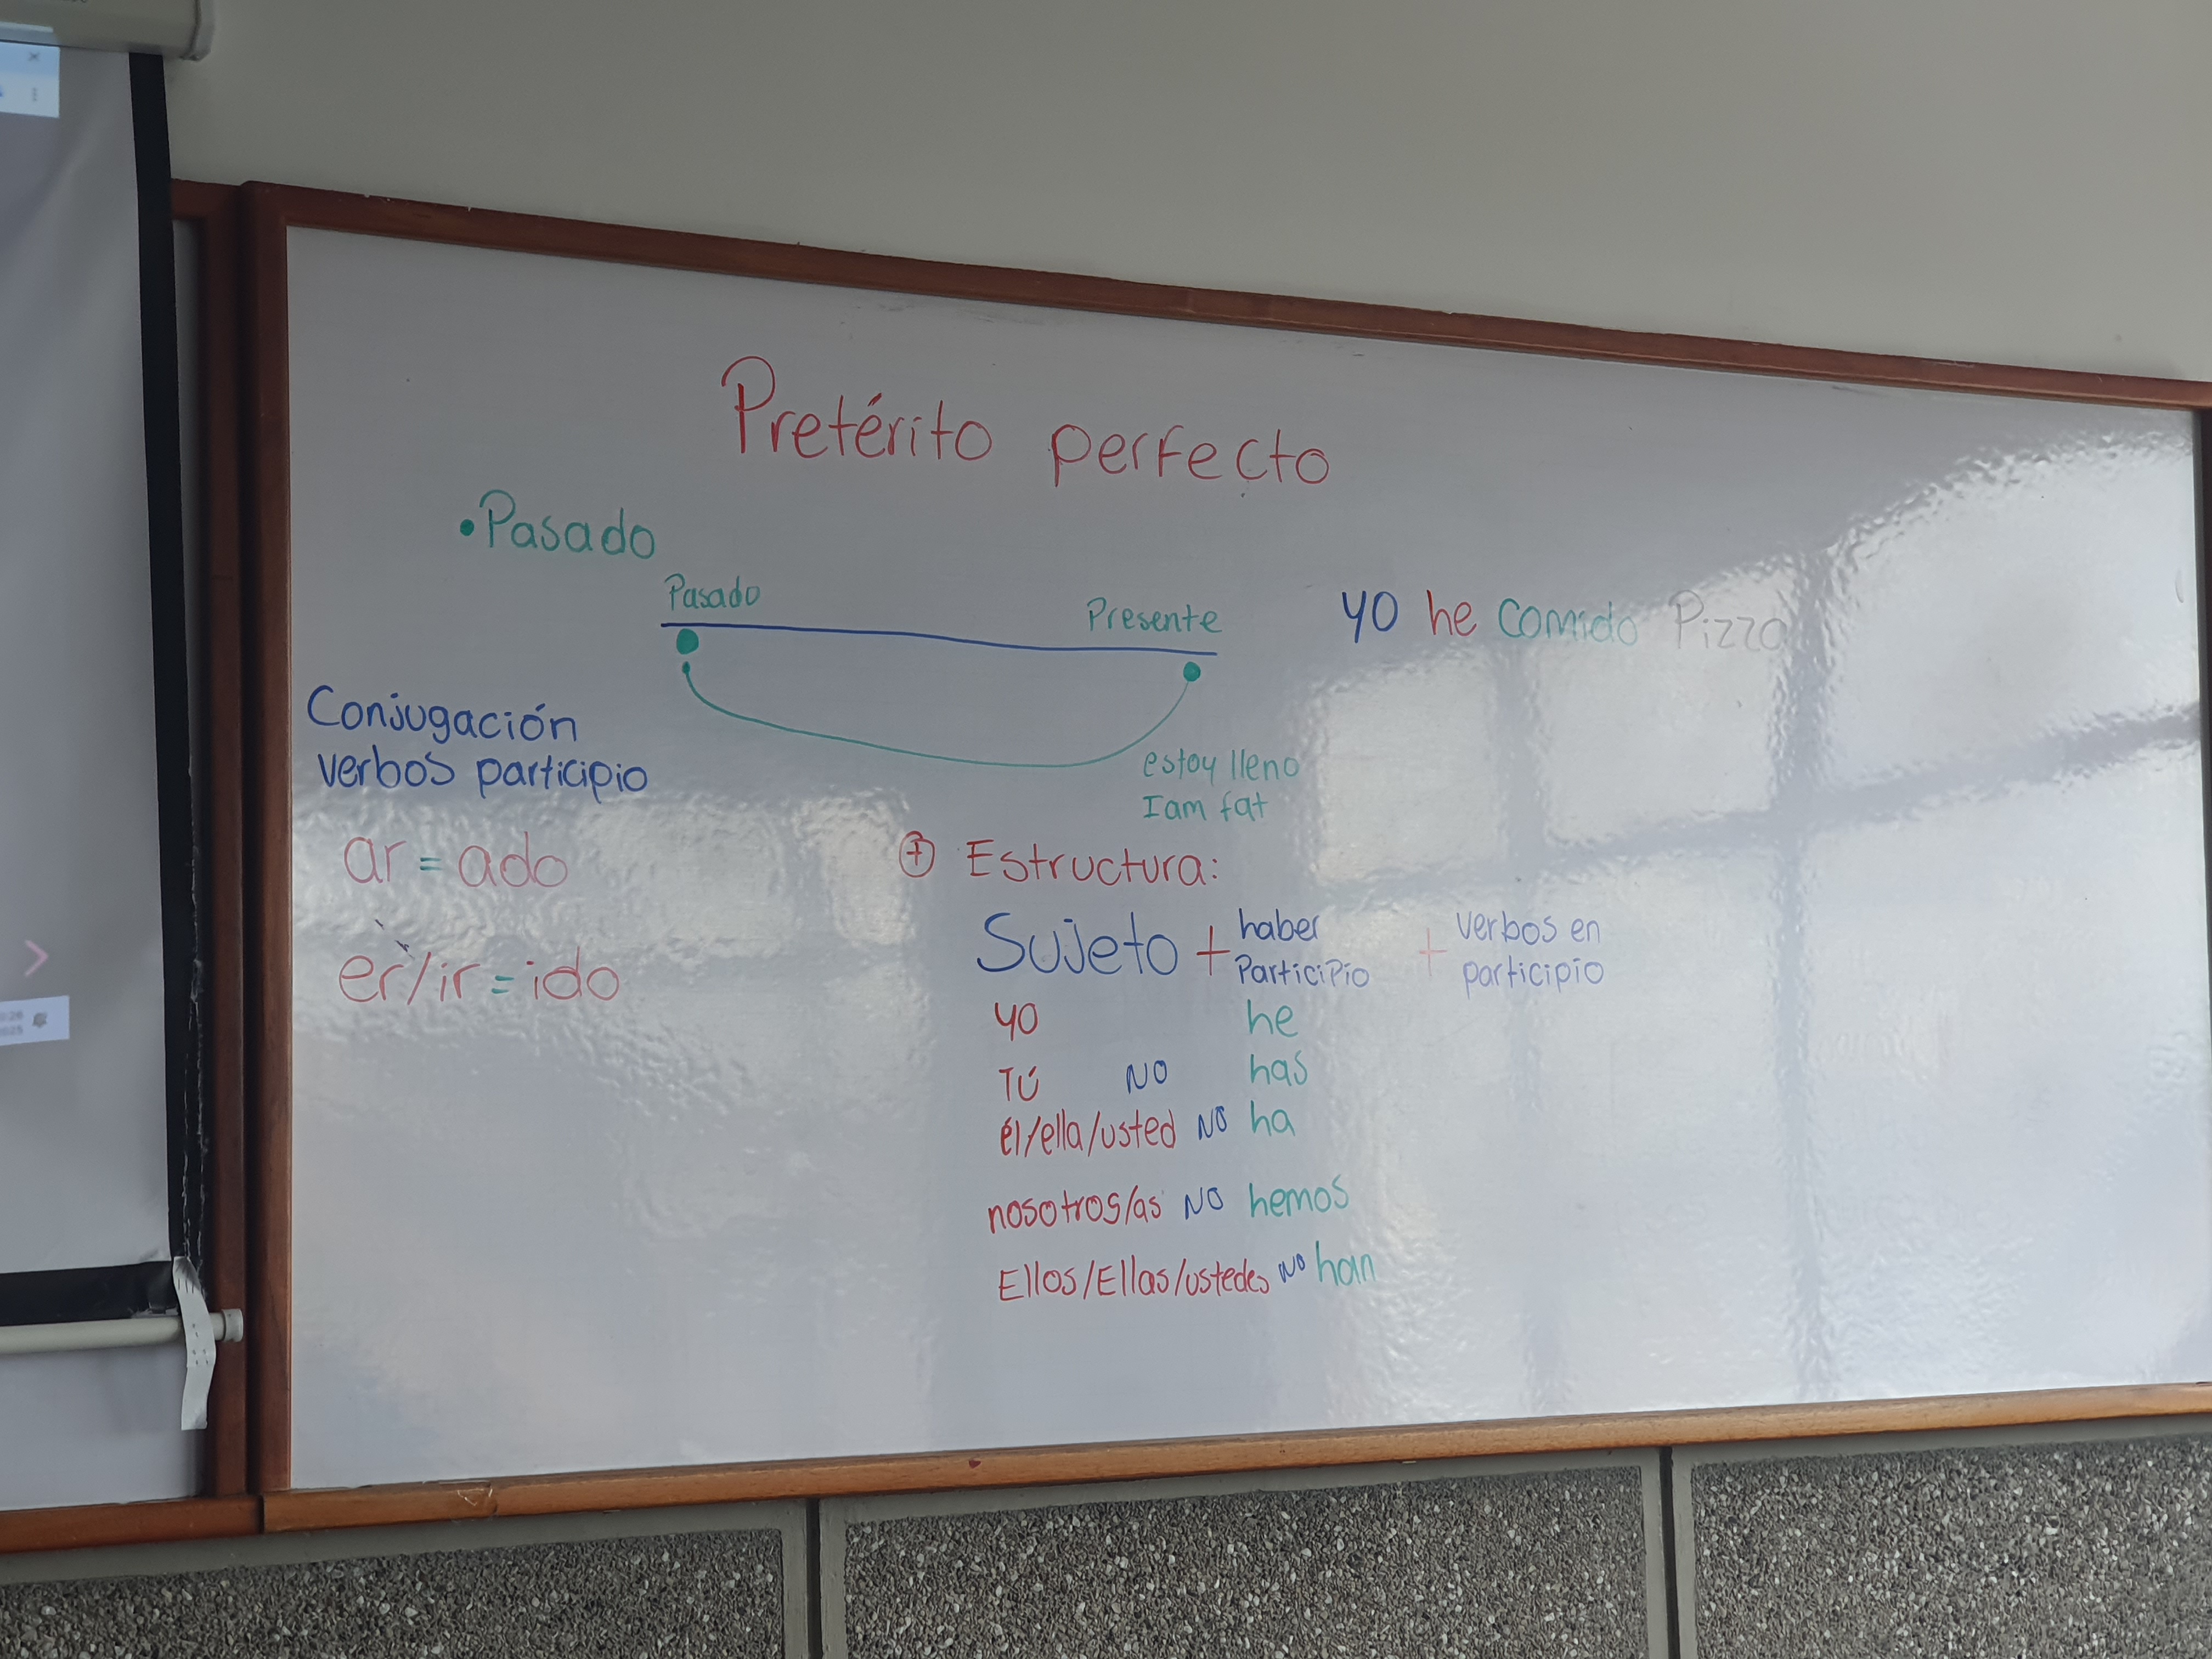 Pretérito perfecto
•Pasado
Pasado
Presente
yo he comido Pizza
estoy lleno
I am fat
Conjugación
verbos participio
ar = ado
er/ir = ido
+ Estructura:
Sujeto + haber Participio + verbos en participio
yo he
TÚ NO has
él/ella/usted NO ha
nosotros/as NO hemos
Ellos/Ellas/ustedes NO han